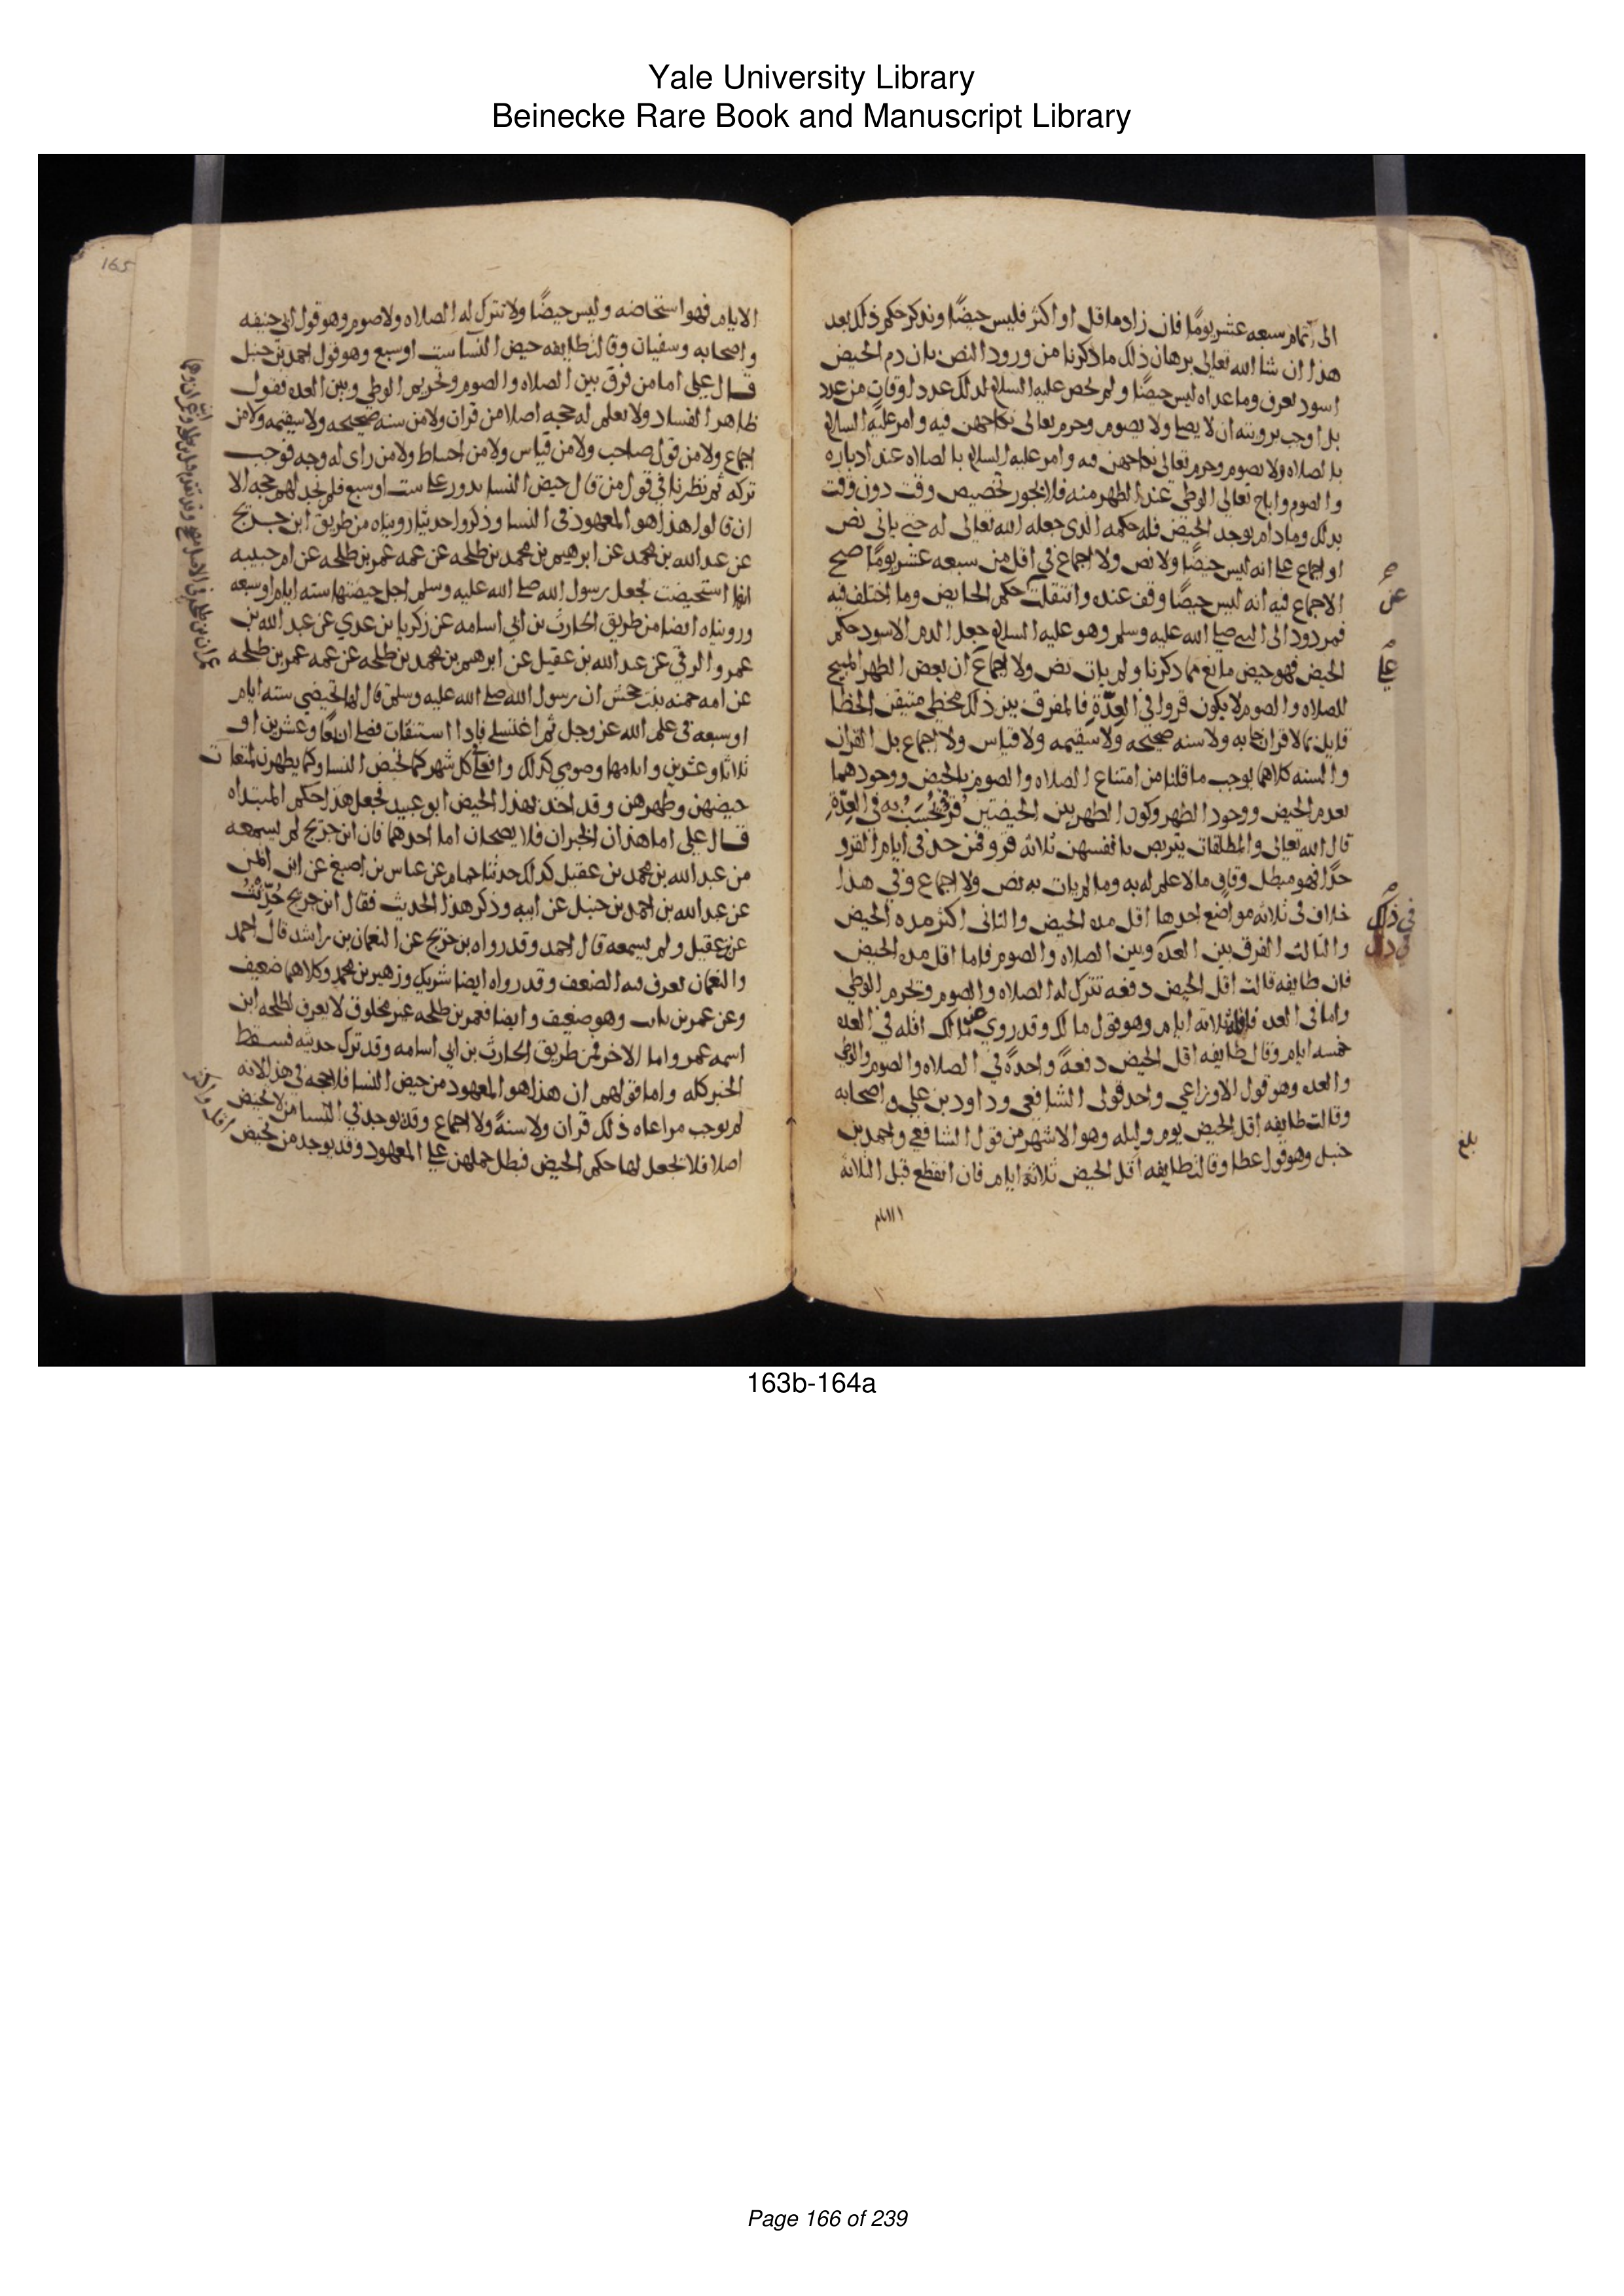 Yale University Library
Beinecke Rare Book and Manuscript Library
الى تمام سبعه عشر يومًا فان زاد ما قل او اكثر فليس حيضًا ونذكر حكم ذلك بعد
هذا ان شا الله تعالى برهان ذلك ما ذكرنا من ورود النص بان دم الحيض
اسود يعرف وما عداه ليس حيضًا ولم يخص عليه السلام لذلك عدد اوقات من عدد
بل اوجب برويته ان لا يصلى ولا يصوم وحرم تعالى نكاحهن فيه وامر عليه السلام
بالصلاه ولا يصوم وحرم تعالى نكاحهن فيه وامر عليه السلام بالصلاه عند ادباره
والصوم واباح تعالى الوطى عند الطهر منه فلا يجوز تخصيص وقت دون وقت
بذلك وما دام يوجد الحيض فله حكمه الذى جعله الله تعالى له حتى ياتى نص
او اجماع على انه ليس حيضًا ولا نص ولا اجماع في اقل من سبعه عشر يومًا صح
الاجماع فيه انه ليس حيضًا وقف عنده وانتقلت حكم الحايض وما اختلف فيه
فمردود الى النبى صلى الله عليه وسلم وهو عليه السلام جعل الدم الاسود حكم
الحيض فهو حيض مانع مما ذكرنا ولم يات نص ولا اجماع ان بعض الطهر المبيح
للصلاه والصوم لا يكون قروا في العِدّة فالمفرق بين ذلك مخطى متيقن الخطا
قايل بما لا قران جا به ولا سنه صحيحه ولا سقيمه ولا قياس ولا اجماع بل القران
والسنه كلاهما يوجب ما قلنا من امتناع الصلاه والصوم بالحيض ووجودهما
بعدم الحيض ووجود الطهر وكون الطهر بين الحيضتين قروًا يُحْسَبُ به فى العِدّةِ
قال الله تعالى والمطلقات يتربصن بانفسهن ثلاثه قرو فمن حد فى ايام القرو
حدًا فهو مبطل وقافٍ ما لا علم له به وما لم يات به نص ولا اجماع وفي هذا
خلاف فى ثلاثه مواضع احدها اقل مده الحيض والثانى اكثر مده الحيض
والثالث الفرق بين العده وبين الصلاه والصوم فاما اقل مده الحيض
فان طايفه قالت اقل الحيض دفعه تترك له الصلاه والصوم وتحرم الوطي
واما فى العده فاقله ثلاثه ايام وهو قول مالك وقد روي عن مالك اقله في العده
خمسه ايام وقالت طايفه اقل الحيض دفعهً واحدهً في الصلاه والصوم والوطى
والعده وهو قول الاوزاعي واحد قولى الشافعي وداود بن على واصحابه
وقالت طايفه اقل الحيض يوم وليله وهو الاشهر من قول الشافعي واحمد بن
حنبل وهو قول عطا وقالت طايفه اقل الحيض ثلاثه ايام فان انقطع قبل الثلاثه
الايام
عن
على
في ذلك
في ذلك
بلغ
165
الايام فهو استحاضه وليس حيضًا ولا تترك له الصلاه ولا صوم وهو قول ابي حنيفه
واصحابه وسفيان وقالت طايفه حيض النسا ست او سبع وهو قول احمد بن حنبل
قال على اما من فرق بين الصلاه والصوم وتحريم الوطى وبين العده فقول
ظاهر الفساد ولا يعلم له حجه اصلا من قران ولا من سنه صحيحه ولا سقيمه ولا من
اجماع ولا من قول صاحب ولا من قياس ولا من احتياط ولا من راى له وجه فوجب
تركه ثم نظرنا في قول من قال حيض النسا يدور على ست او سبع فلم نجد لهم حجه الا
ان قالوا هذا هو المعهود فى النسا وذكروا حديثا رويناه من طريق ابن جريج
عن عبد الله بن محمد عن ابرهيم بن محمد بن طلحه عن عمه عمر بن طلحه عن ام حبيبه
انها استحيضت فجعل رسول الله صلى الله عليه وسلم اجل حيضتها سته ايام او سبعه
ورويناه ايضا من طريق الحارث بن ابي اسامه عن زكريا بن عدي عن عبد الله بن
عمرو الرقي عن عبد الله بن عقيل عن ابرهيم بن محمد بن طلحه عن عمه عمر بن طلحه
عن امه حمنه بنت جحش ان رسول الله صلى الله عليه وسلم قال لها تحيضى سته ايام
او سبعه فى علم الله عز وجل ثم اغتسلى فاذا استنقات فصلى اربعًا وعشرين او
ثلاثا وعشرين وايامها وصومى كذلك وافعلى كل شهر كما تحيض النسا وكما يطهرن لميقات
حيضهن وطهرهن وقد اخذ بهذا الحيض ابو عبيد فجعل هذا حكم المبتداه
قال على اما هذان الخبران فلا يصحان اما احدهما فان ابن جريج لم يسمعه
من عبد الله بن محمد بن عقيل كذلك حدثنا حمام عن عباس بن اصبغ عن ابن ايمن
عن عبد الله بن احمد بن حنبل عن ابيه وذكر هذا الحديث فقال ابن جريج حُدِّثْتُ
عن عقيل ولم يسمعه قال احمد وقد رواه بن جريج عن النعمان بن راشد قال احمد
والنعمان يعرف فيه الضعف وقد رواه ايضا شريك وزهير بن محمد وكلاهما ضعيف
وعن عمر بن ثابت وهو ضعيف وايضا فعمر بن طلحه غير مخلوق لا يعرف لطلحه ابن
اسمه عمر واما الاخر فمن طريق الحارث بن ابي اسامه وقد ترك حديثه فسقط
الخبر كله واما قولهم ان هذا هو المعهود من حيض النسا فلا حجه في هذا لانه
لم يوجب مراعاه ذلك قران ولا سنهً ولا اجماع وقد يوجد في النسا من لا تحيض
اصلا فلا تجعل لها حكم الحيض فبطل حملهن على المعهود وقد يوجد من تحيض
163b-164a
Page 166 of 239